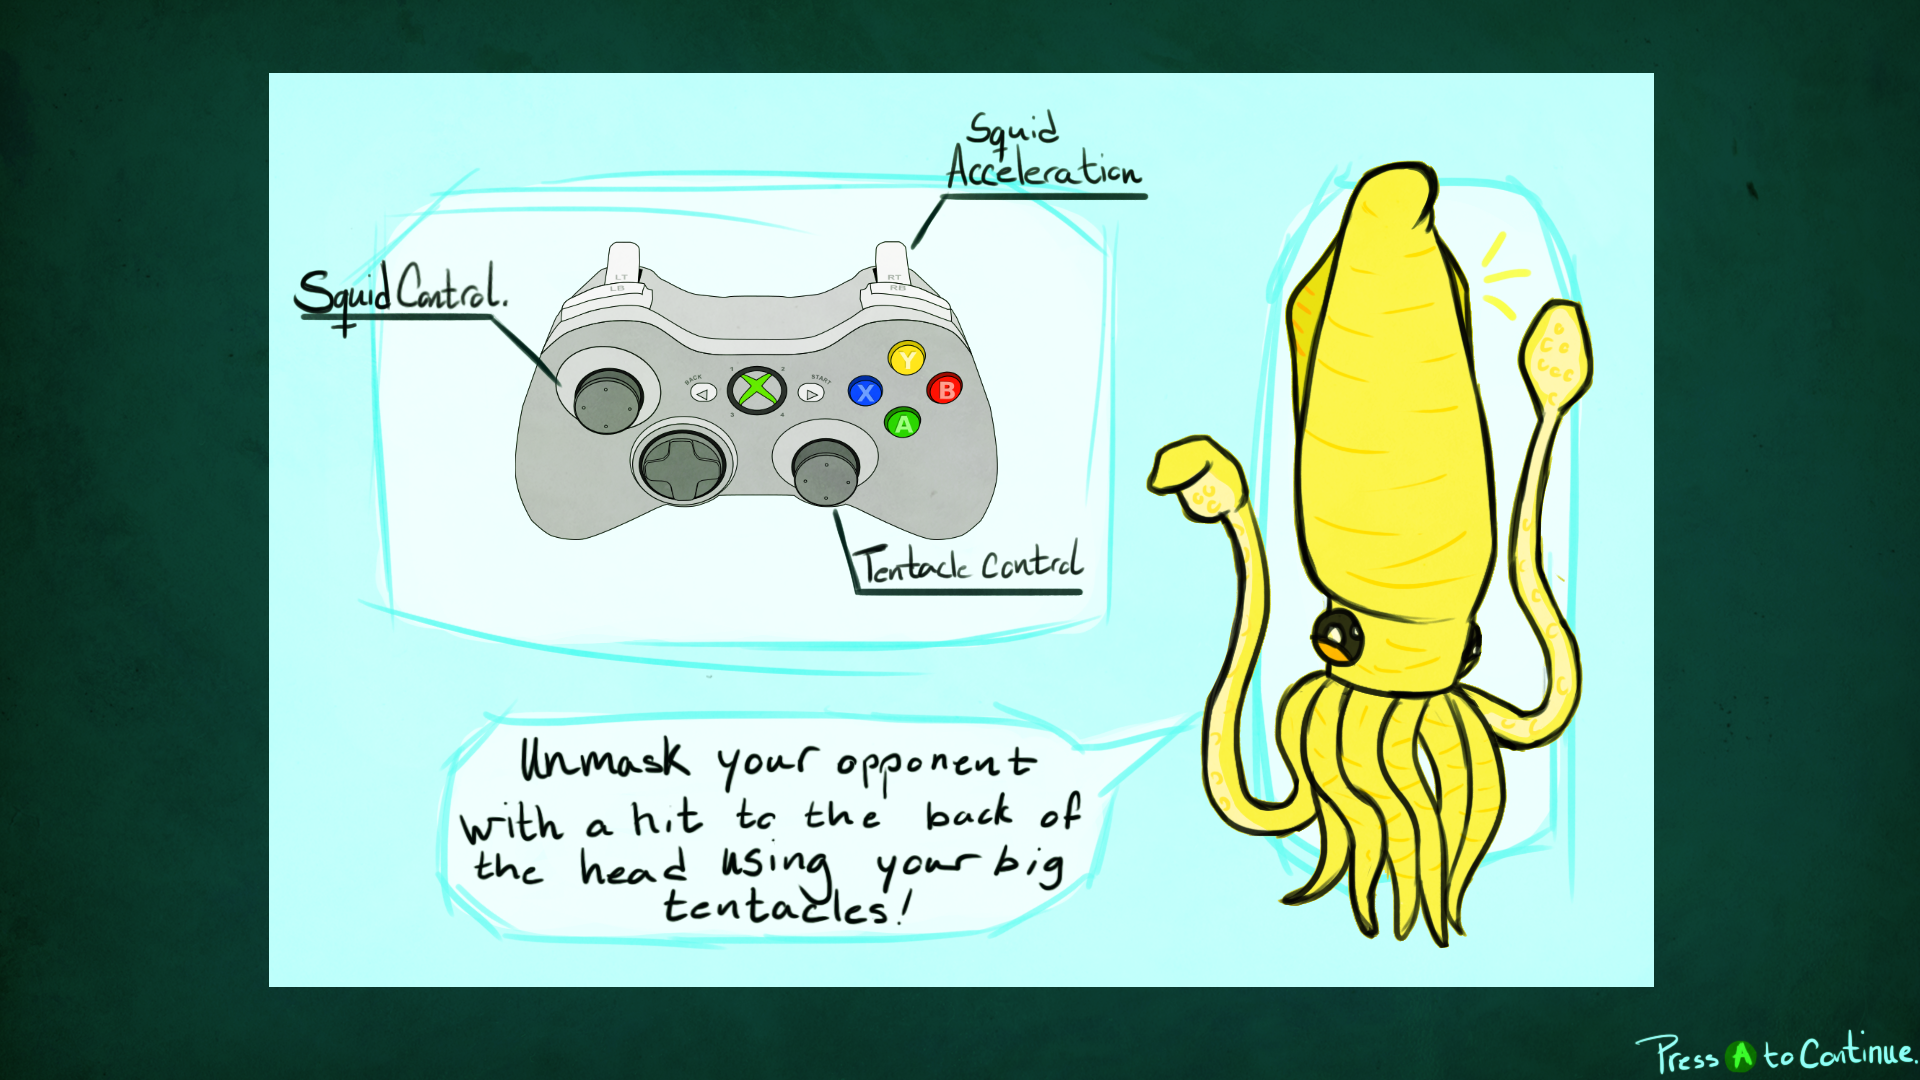 Squid
Acceleration
Squid Control.
LT
LB
RT
RB
BACK
START
1
2
3
4
Y
X
B
A
Tentacle Control
Unmask your opponent
with a hit to the back of
the head using your big
tentacles!
Press A to Continue.